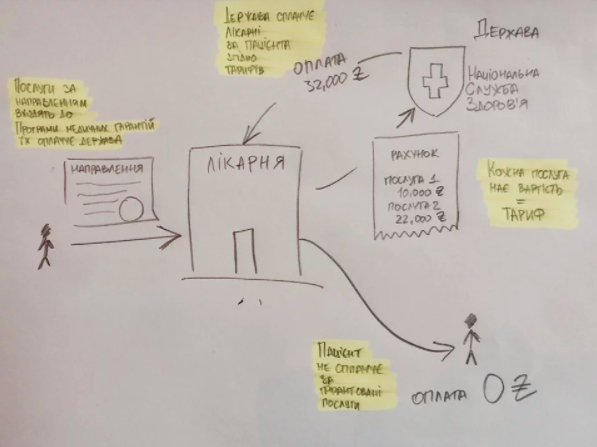 Держава сплачує
лікарні
за пацієнта
згідно
тарифів
ОПЛАТА
32,000 ₴
Держава
Національна
Служба
Здоров'я
Послуги за
направленням
входять до
Програми медичних гарантій
їх оплачує держава
НАПРАВЛЕННЯ
ЛІКАРНЯ
РАХУНОК
ПОСЛУГА 1
10,000 ₴
ПОСЛУГА 2
22,000 ₴
Кожна послуга
має вартість
=
ТАРИФ
Пацієнт
не сплачує
за
гарантовані
послуги
ОПЛАТА 0 ₴